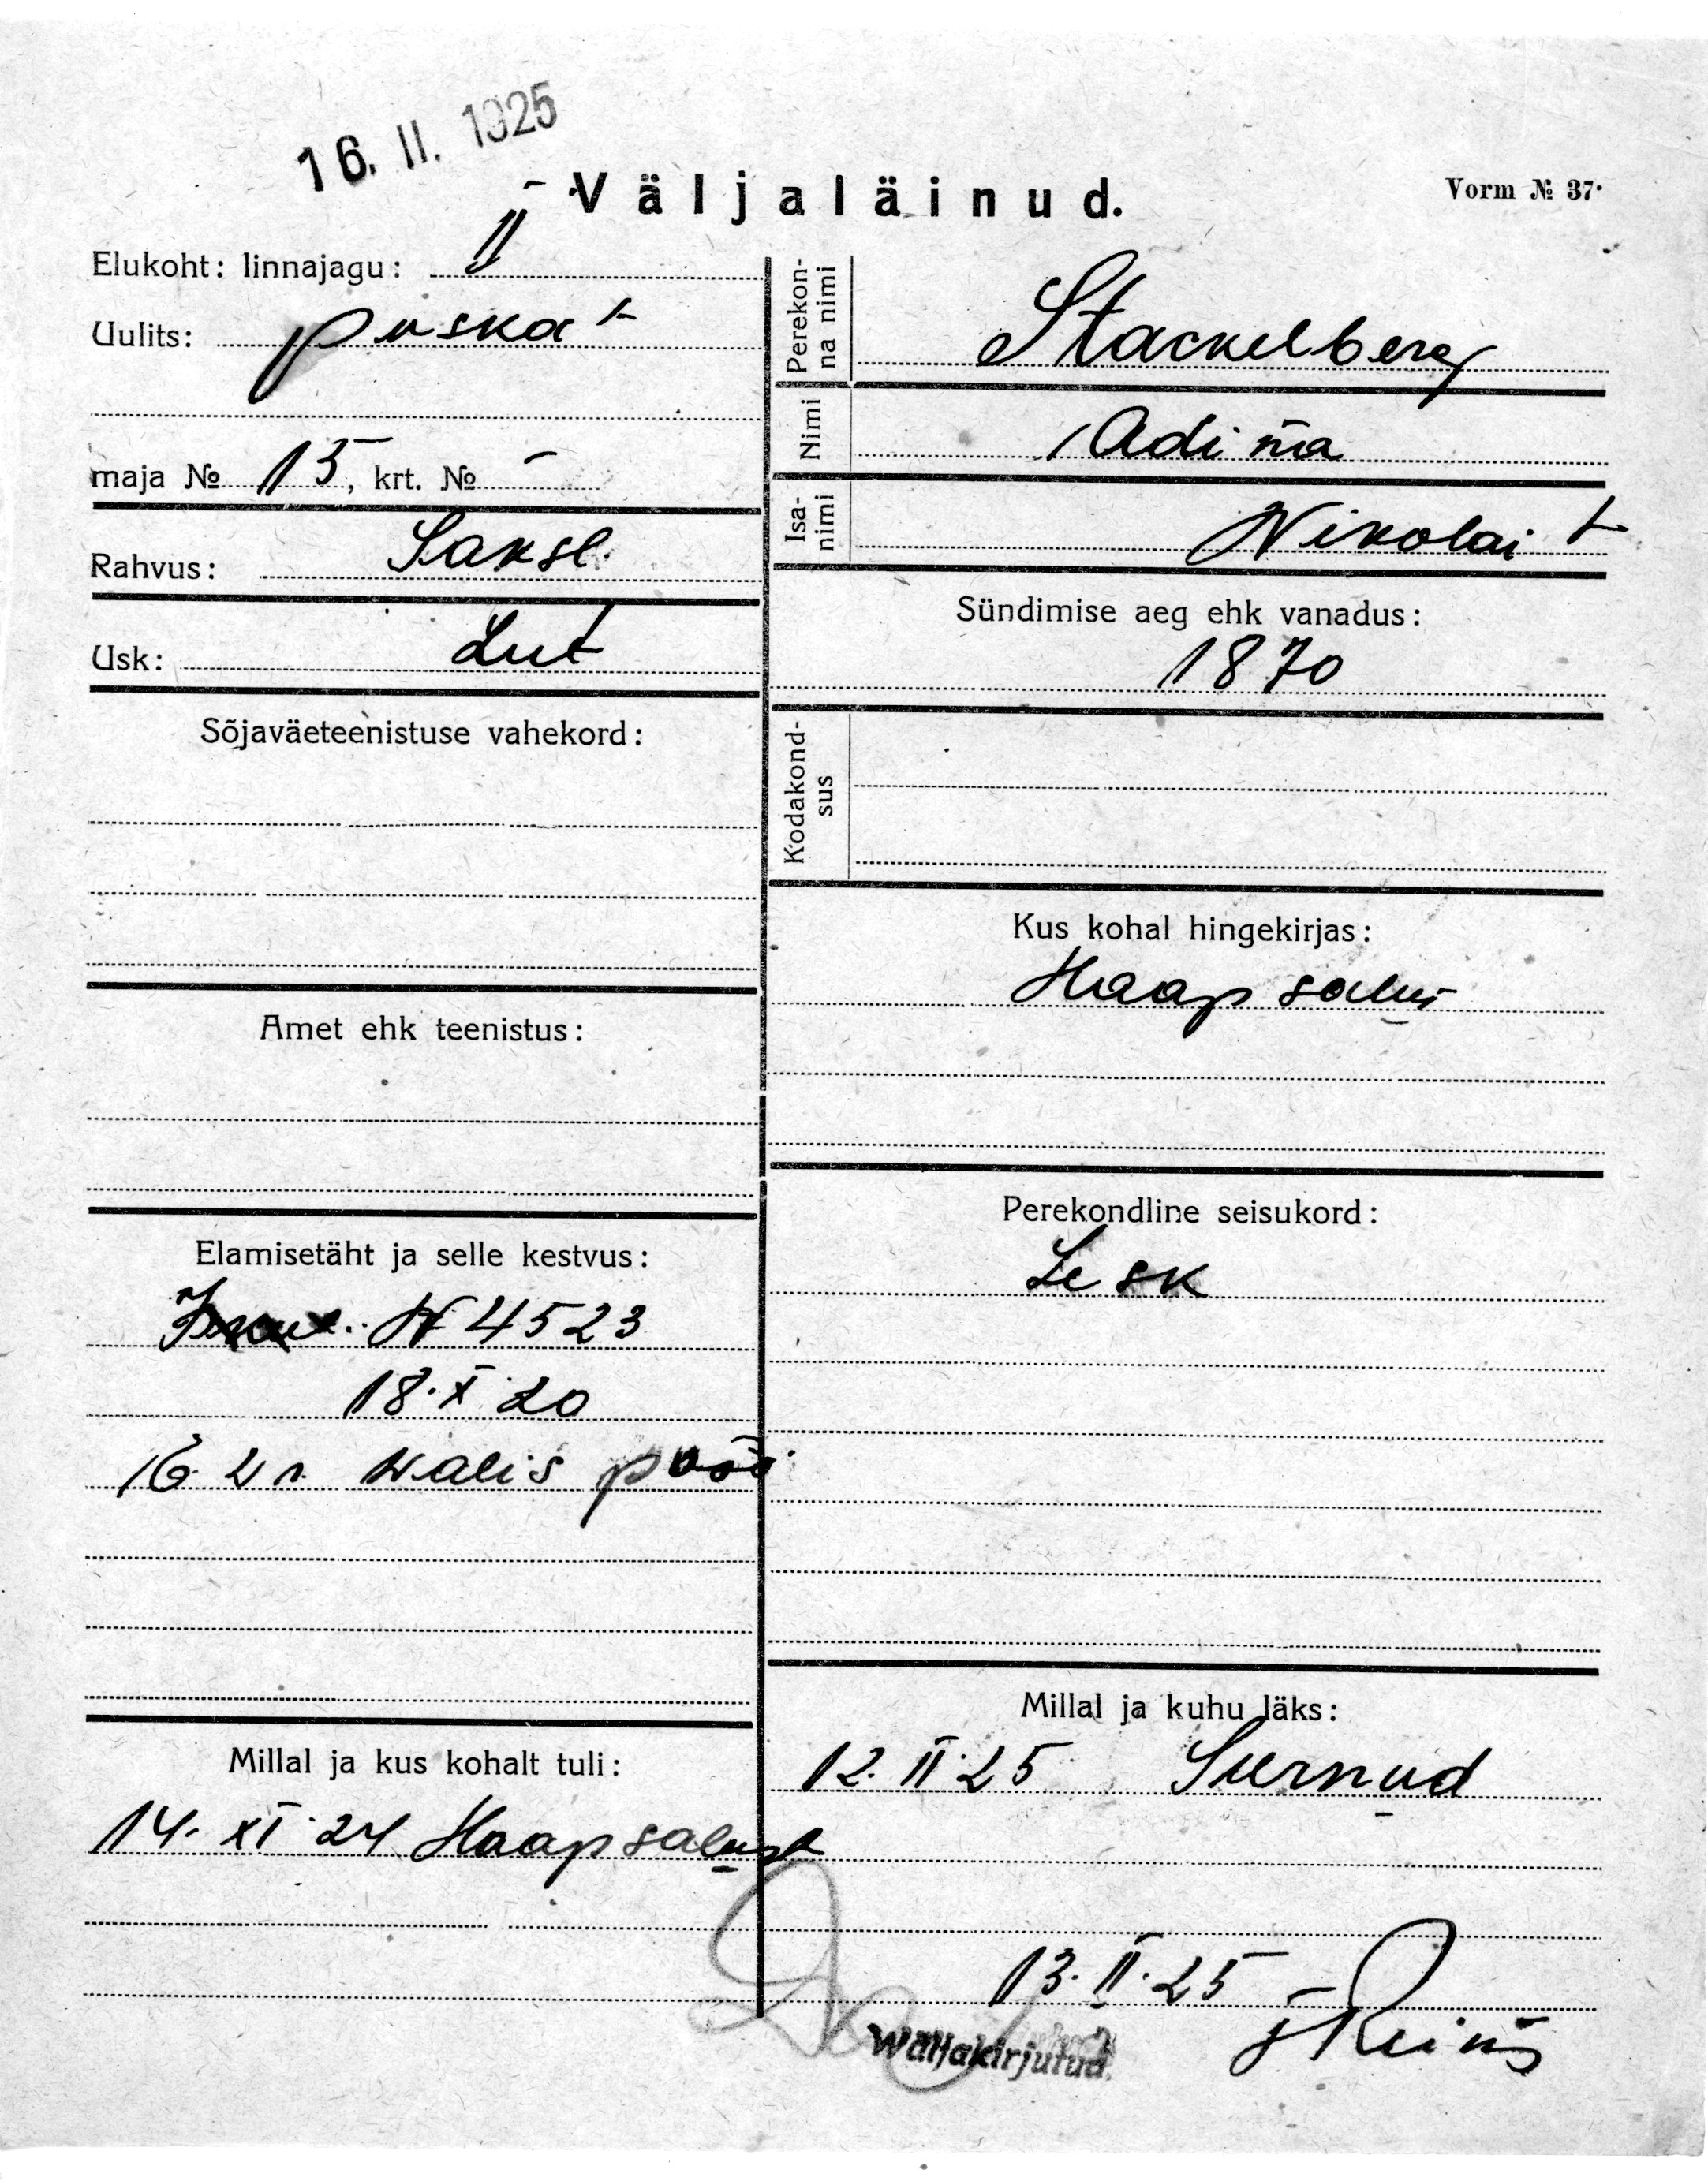 16. II. 1925
Väljaläinud.
Vorm № 37.
Elukoht: linnajagu: II
Uulits: puska t
maja № 13, krt. № –
Rahvus: Saksl.
Usk: Lut
Sõjaväeteenistuse vahekord:
Amet ehk teenistus:
Elamisetäht ja selle kestvus:
N 4523
18. X 20
walis
Millal ja kus kohalt tuli:
14. XI 24 Haapsalust
Perekon-
na nimi
Stackelberg
Nimi
Adina
Isa-
nimi
Nikolai t
Sündimise aeg ehk vanadus:
1870
Kodakond-
sus
Kus kohal hingekirjas:
Haapsalus
Perekondline seisukord:
Lesk
Millal ja kuhu läks:
12. II 25 Surnud
13. II. 25
Wäljakirjutud.